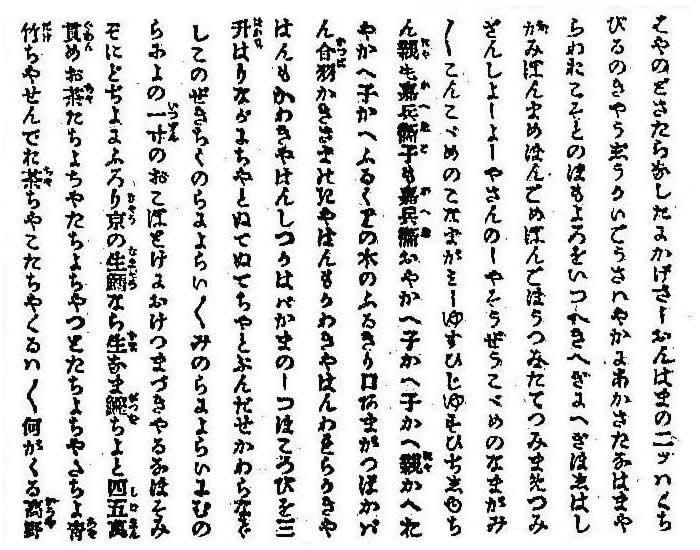 はやのどさたらなしたまかげさしおんはまの二ツハくち
びるのきやうぢうかいごうさハやかまあかさたなはまや
らわおこそとのほもよろをいつへきへぎまへぎほしはし
かみぼんまめぼんごめぼんごほうつみたてつみまめつみ
ざんしよしよしやさんのしやそうぜうこべめのなまがみ
〱こんこべめのこなまがミしゆすひじゆすひちしゆち
ん親も嘉兵衛子も嘉兵衛おやかへ子かへ子かへ親かへれ
やかへ子かへふるくりの木のふるきり口阿まがつぱかバ
ん合羽かきさまのきやはんもかわきやはんわれらのきや
はんもかわきやはんしつかはバかまのしつほころびを三
升はりながまちやとぬてぬてちやとぶんだせかわらなで
してのぜきちくのらまよらい〱みのらまよらいまむの
らまよの一寸のおこほとけまおけつまづきやるなほそみ
ぞにどぢよまよろり京の生鱈なら生なま鰹ちよと四五萬
貫めお茶たちよちやたちよちやつとたちよちやたちよ青
竹ちやせんでお茶ちやとたちやくるハ〱何がくる高野